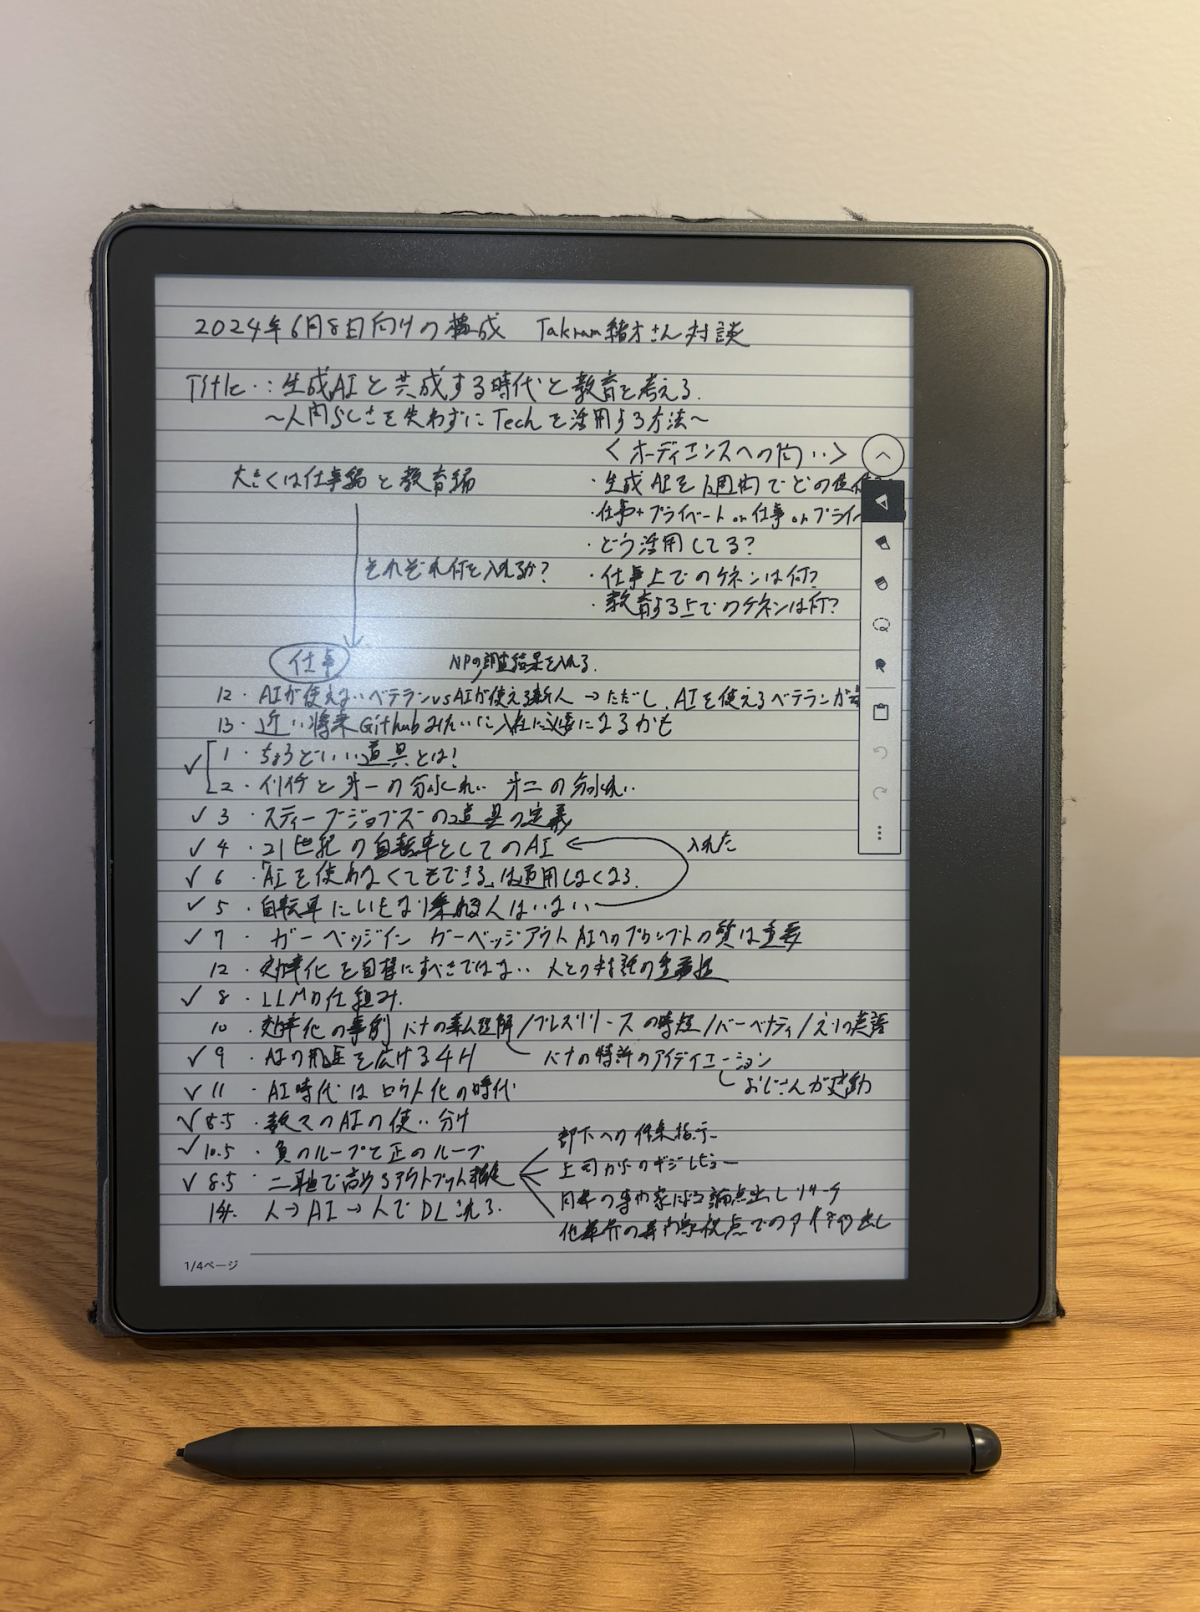 2024年6月8日向けの構成 Takram緒方さん対談
Title : 生成AIと共成する時代と教育を考える。
〜人間らしさを失わずにTechを活用する方法〜
<オーディエンスへの問い>
大きくは仕事編と教育編
・生成AIを1週間でどの
・仕事+プライベート or 仕事 or プライベ
・どう活用してる?
それぞれ何を入れるか?
・仕事上でのケネンは何?
・教育する上でのケネンは何?
仕事
NPの調査結果を入れる。
12・AIが使えないベテランvsAIが使える新人→ただし、AIを使えるベテランが
13・近い将来Githubみたいに入社に必要になるかも
✓ 1・ちょうどいい道具とは!
2・イリイチと第一の分水れい 第二の分水れい
✓ 3・スティーブジョブズの道具の定義
✓ 4・21世紀の自転車としてのAI
入れた
✓ 6・「AIを使わなくてもできる」は通用しなくなる。
✓ 5・自転車にいきなり乗れる人はいない
✓ 7・ガーベッジイン ガーベッジアウト AIへのプロンプトの質は重要
12・効率化を目標にすべきではない 人との対話の重要性
✓ 8・LLMの仕組み。
10・効率化の事例 パナの 理解/プレスリリースの時短/バーベナティ/ の英語
✓ 9・AIの用途を広げる4H
パナの特許のアイディエーション
おじさんが感動
✓ 11・AI時代はロウト化の時代
✓ 8.5・数々のAIの使い分け
✓ 10.5・負のループと正のループ
✓ 8.5・二軸で高めるアウトプット精度
部下への作業指示
上司からのギジレビュー
同業の専門家による論点出しリサーチ
他業界の専門家視点でのアイデア出し
14・人→AI→人でDLされる。
1/4ページ